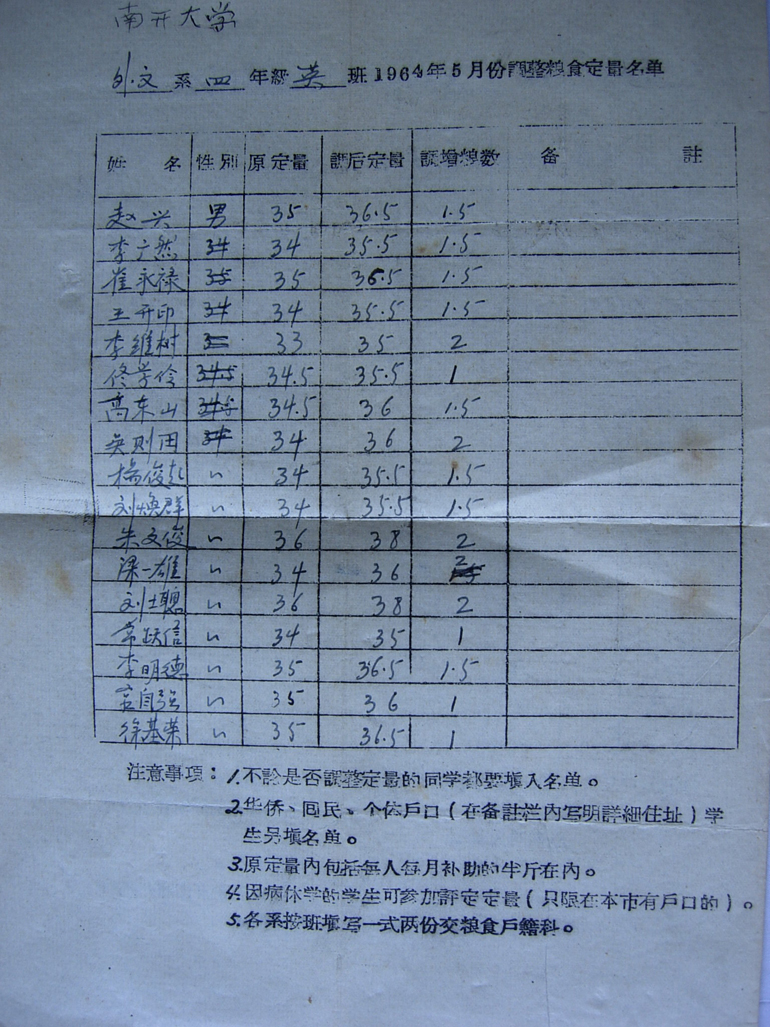 南开大学
外文 系 四 年級 英 班1964年5月份調整粮食定量名单
姓 名 性别 原定量 調后定量 調增粮数 备 註
赵兴 男 35 36.5 1.5
李广然 34 34 35.5 1.5
崔永禄 35 35 36.5 1.5
王开印 34 34 35.5 1.5
李維树 33 35 2
佟学伶 34.5 34.5 35.5 1
高东山 34.5 34.5 36 1.5
吴则田 34 34 36 2
杨俊 〃 34 35.5 1.5
刘焕群 〃 34 35.5 1.5
朱文俊 〃 36 38 2
梁一雄 〃 34 36 2
刘士聪 〃 36 38 2
常跃信 〃 34 35 1
李明德 〃 35 36.5 1.5
宫自强 〃 35 36 1
徐基荣 〃 35 36.5 1
注意事項：1.不論是否調整定量的同学都要填入名单。
2.华侨、回民、个体戶口（在备註栏內写明詳細住址）学
生另填名单。
3.原定量內包括每人每月补助的半斤在內。
4.因病休学的学生可参加評定定量（只限在本市有戶口的）。
5.各系按班填写一式两份交粮食戶籍科。